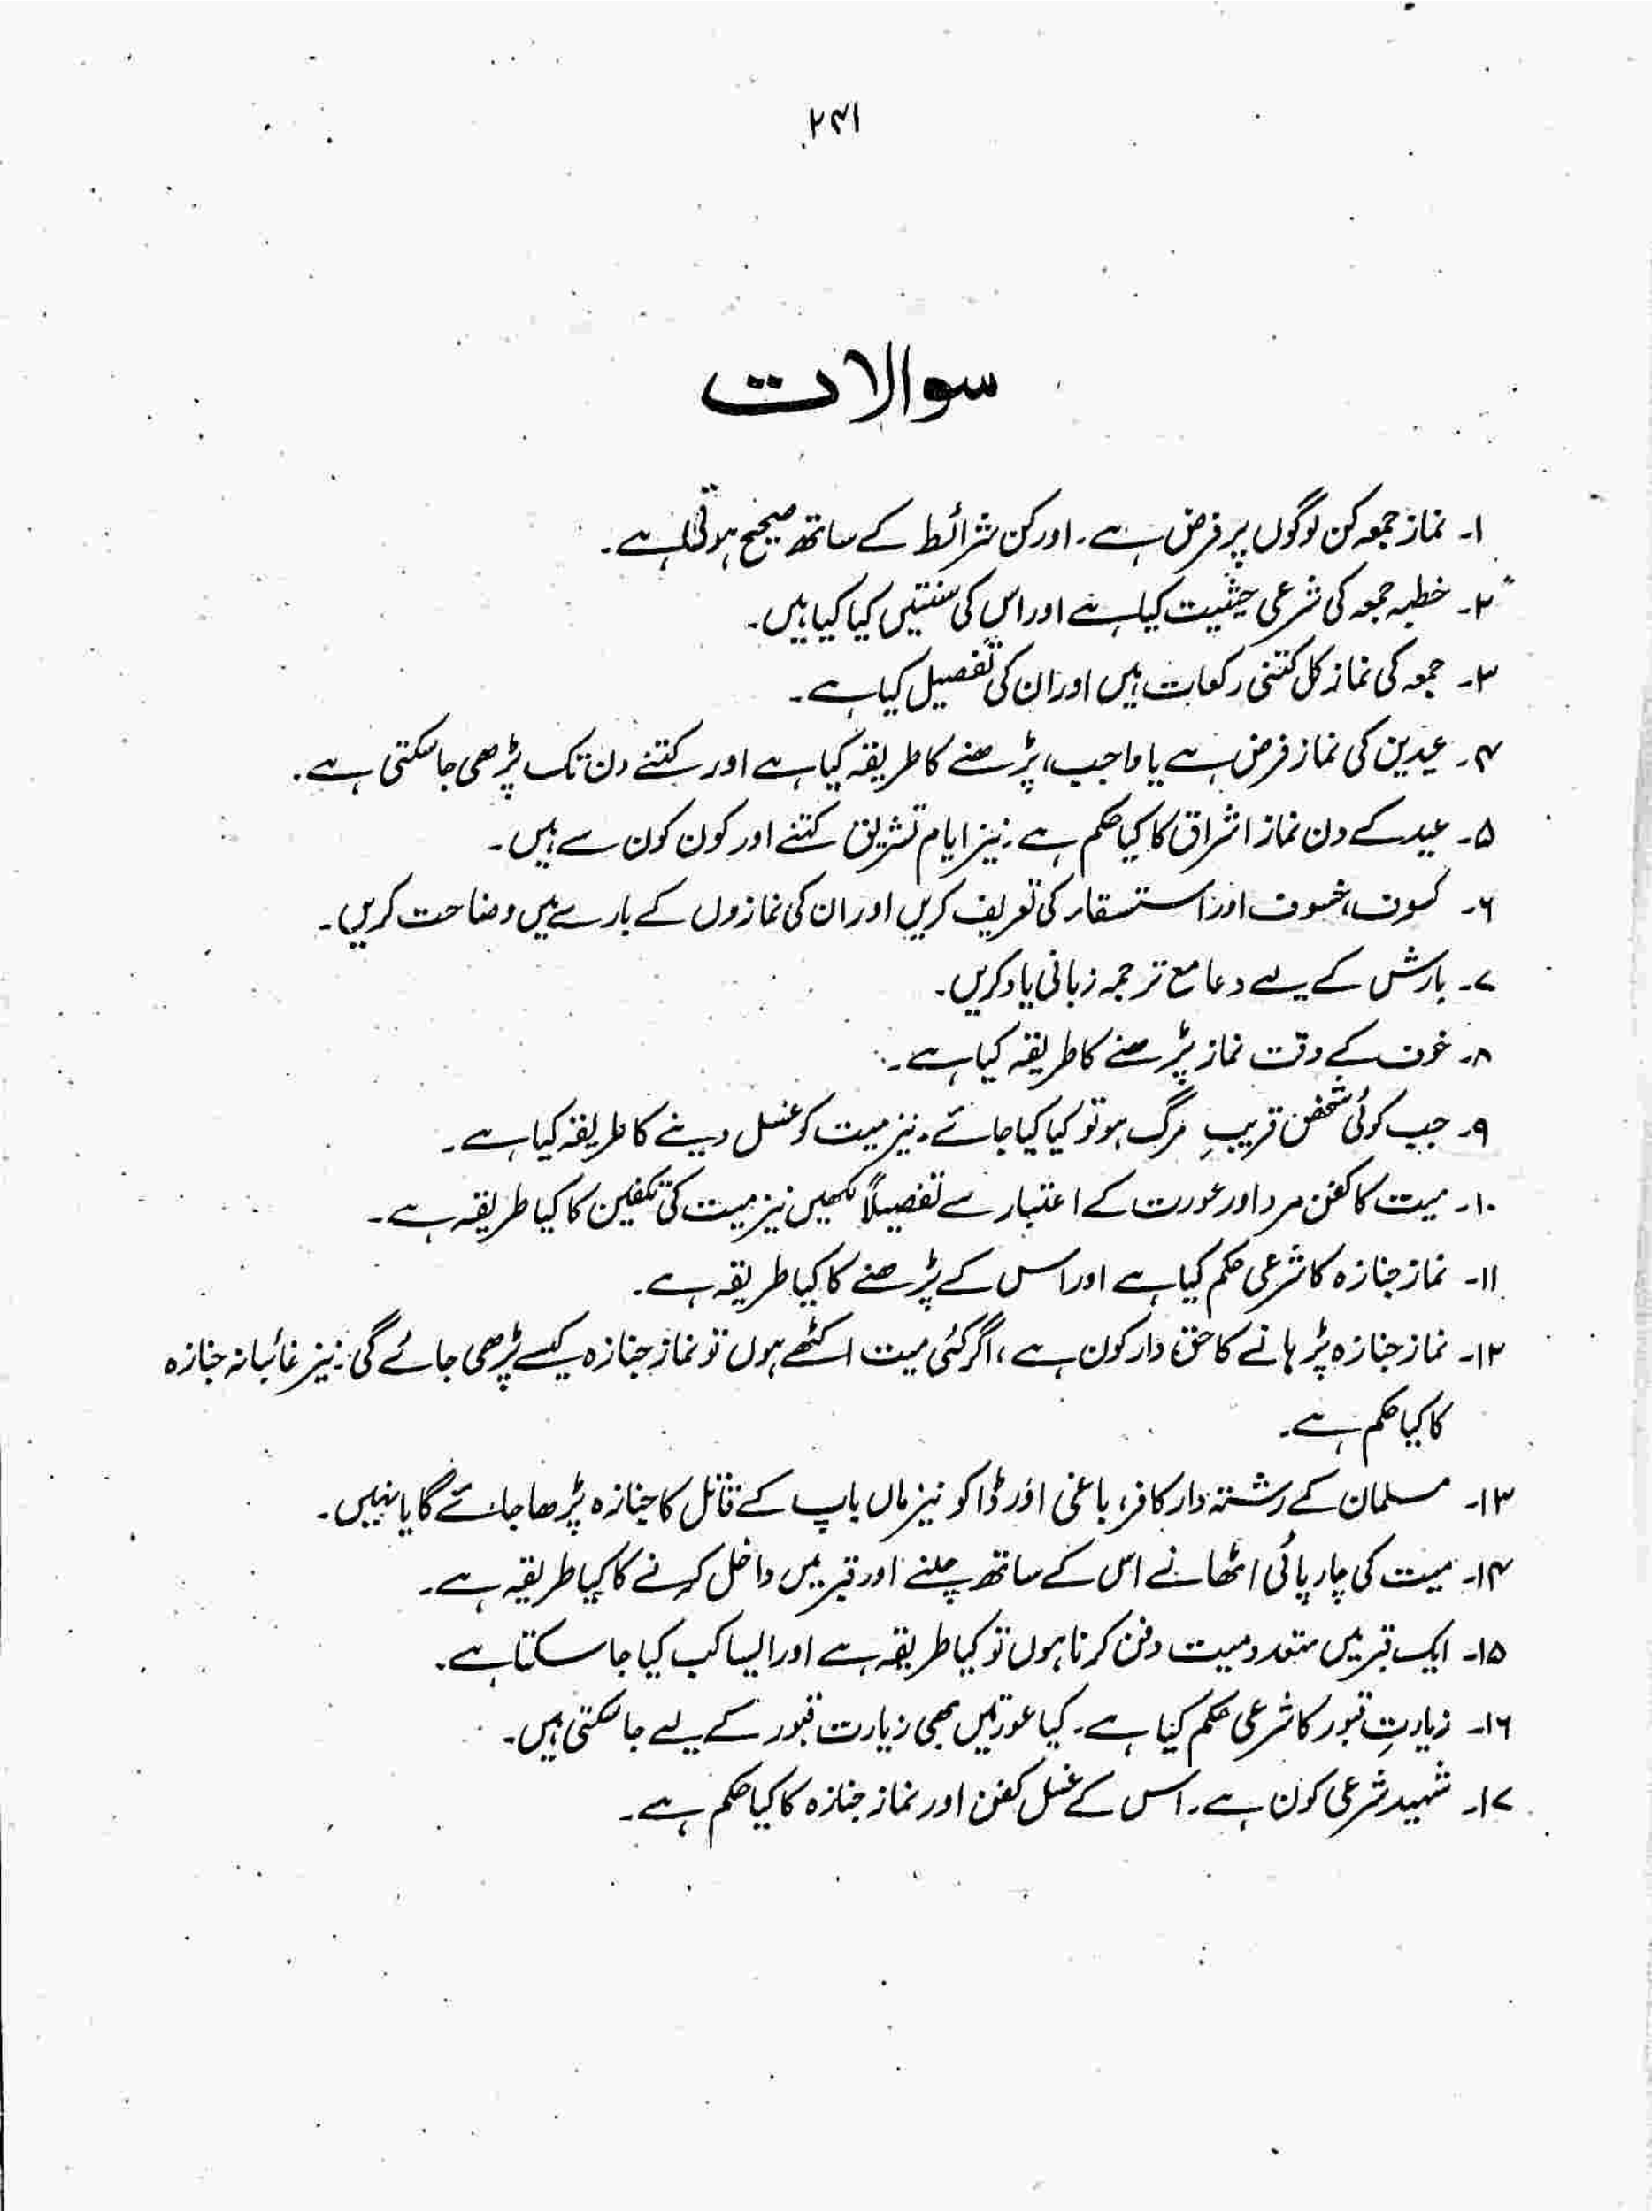 ۲۴۱
سوالات
۱۔ نماز جمعہ کن لوگوں پر فرض ہے۔ اور کن شرائط کے ساتھ صحیح ہوتی ہے۔
۲۔ خطبہ جمعہ کی شرعی حیثیت کیا ہے اور اس کی سنتیں کیا کیا ہیں۔
۳۔ جمعہ کی نماز کل کتنی رکعات ہیں اور ان کی تفصیل کیا ہے۔
۴۔ عیدین کی نماز فرض ہے یا واجب، پڑھنے کا طریقہ کیا ہے اور کتنے دن تک پڑھی جا سکتی ہے۔
۵۔ عید کے دن نماز اشراق کا کیا حکم ہے۔ نیز ایام تشریق کتنے اور کون کون سے ہیں۔
۶۔ کسوف، خسوف اور استسقاء کی تعریف کریں اور ان کی نمازوں کے بارے میں وضاحت کریں۔
۷۔ بارش کے لیے دعا مع ترجمہ زبانی یاد کریں۔
۸۔ خوف کے وقت نماز پڑھنے کا طریقہ کیا ہے۔
۹۔ جب کوئی شخص قریبِ مرگ ہو تو کیا کیا جائے۔ نیز میت کو غسل دینے کا طریقہ کیا ہے۔
۱۰۔ میت کا کفن مرد اور عورت کے اعتبار سے تفصیلاً لکھیں نیز میت کی تکفین کا کیا طریقہ ہے۔
۱۱۔ نماز جنازہ کا شرعی حکم کیا ہے اور اس کے پڑھنے کا کیا طریقہ ہے۔
۱۲۔ نماز جنازہ پڑہانے کا حق دار کون ہے، اگر کئی میت اکٹھے ہوں تو نماز جنازہ کیسے پڑھی جائے گی۔ نیز غائبانہ جنازہ
کا کیا حکم ہے۔
۱۳۔ مسلمان کے رشتہ دار کافر، باغی اور ڈاکو نیز ماں باپ کے قاتل کا جنازہ پڑھا جائے گا یا نہیں۔
۱۴۔ میت کی چارپائی اٹھانے اس کے ساتھ چلنے اور قبر میں داخل کرنے کا کیا طریقہ ہے۔
۱۵۔ ایک قبر میں متعدد میت دفن کرنا ہوں تو کیا طریقہ ہے اور ایسا کب کیا جا سکتا ہے۔
۱۶۔ زیارتِ قبور کا شرعی حکم کیا ہے۔ کیا عورتیں بھی زیارت قبور کے لیے جا سکتی ہیں۔
۱۷۔ شہید شرعی کون ہے۔ اس کے غسل کفن اور نماز جنازہ کا کیا حکم ہے۔